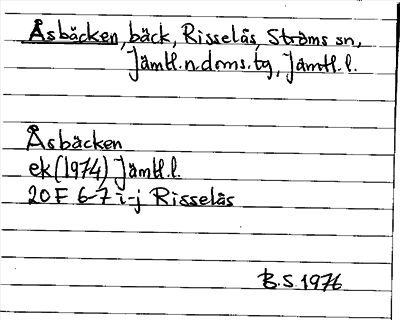 Åsbäcken, bäck, Risselås, Ströms sn,
Jämtl.n.doms.tg, Jämtl.l.
Åsbäcken
ek (1974) Jämtl.l.
20 F 6-7 i-j Risselås
B.S. 1976